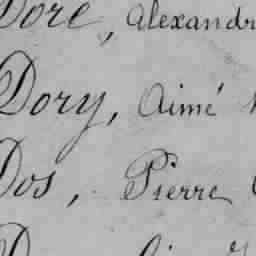 Doré, Alexandr
Dory, Aimé
Dos, Pierre